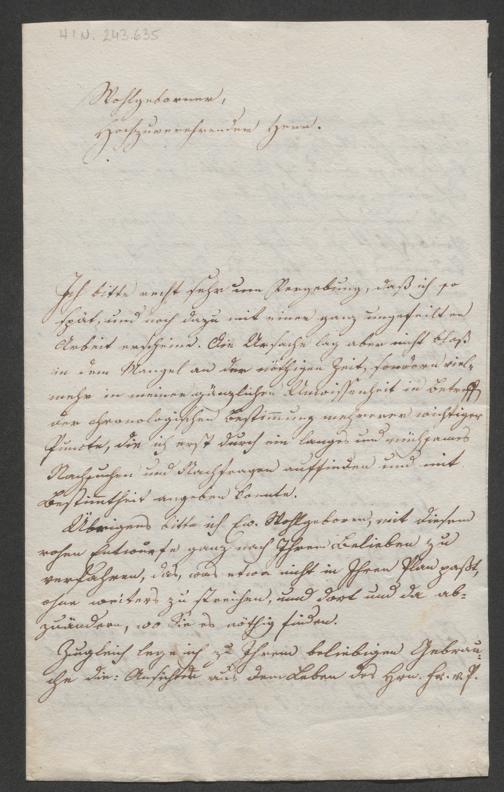 H.I.N. 243.635
Wohlgeborner,
Hochzuverehrender Herr.
Ich bitte recht sehr um Vergebung, daß ich so
spät, und noch dazu mit einer ganz ungefeilten
Arbeit erscheine. Die Ursache lag aber nicht bloß
in dem Mangel an der nöthigen Zeit, sondern viel-
mehr in meiner gänzlichen Unwissenheit in Betreff
der chronologischen Bestimmung mehrerer wichtiger
Puncte, die ich erst durch ein langes und mühsames
Nachsuchen und Nachfragen auffinden und mit
Bestimmtheit angeben konnte.
Übrigens bitte ich Ew. Wohlgeboren, mit diesem
rohen Entwurfe ganz nach Ihrem Belieben zu
verfahren, das, was etwa nicht in Ihren Plan paßt,
ohne weiters zu streichen, und dort und da ab-
zuändern, wo Sie es nöthig finden.
Zugleich lege ich zu Ihrem beliebigen Gebrau-
che die: Ansichten aus dem Leben des Hrn. Fr. v. P.